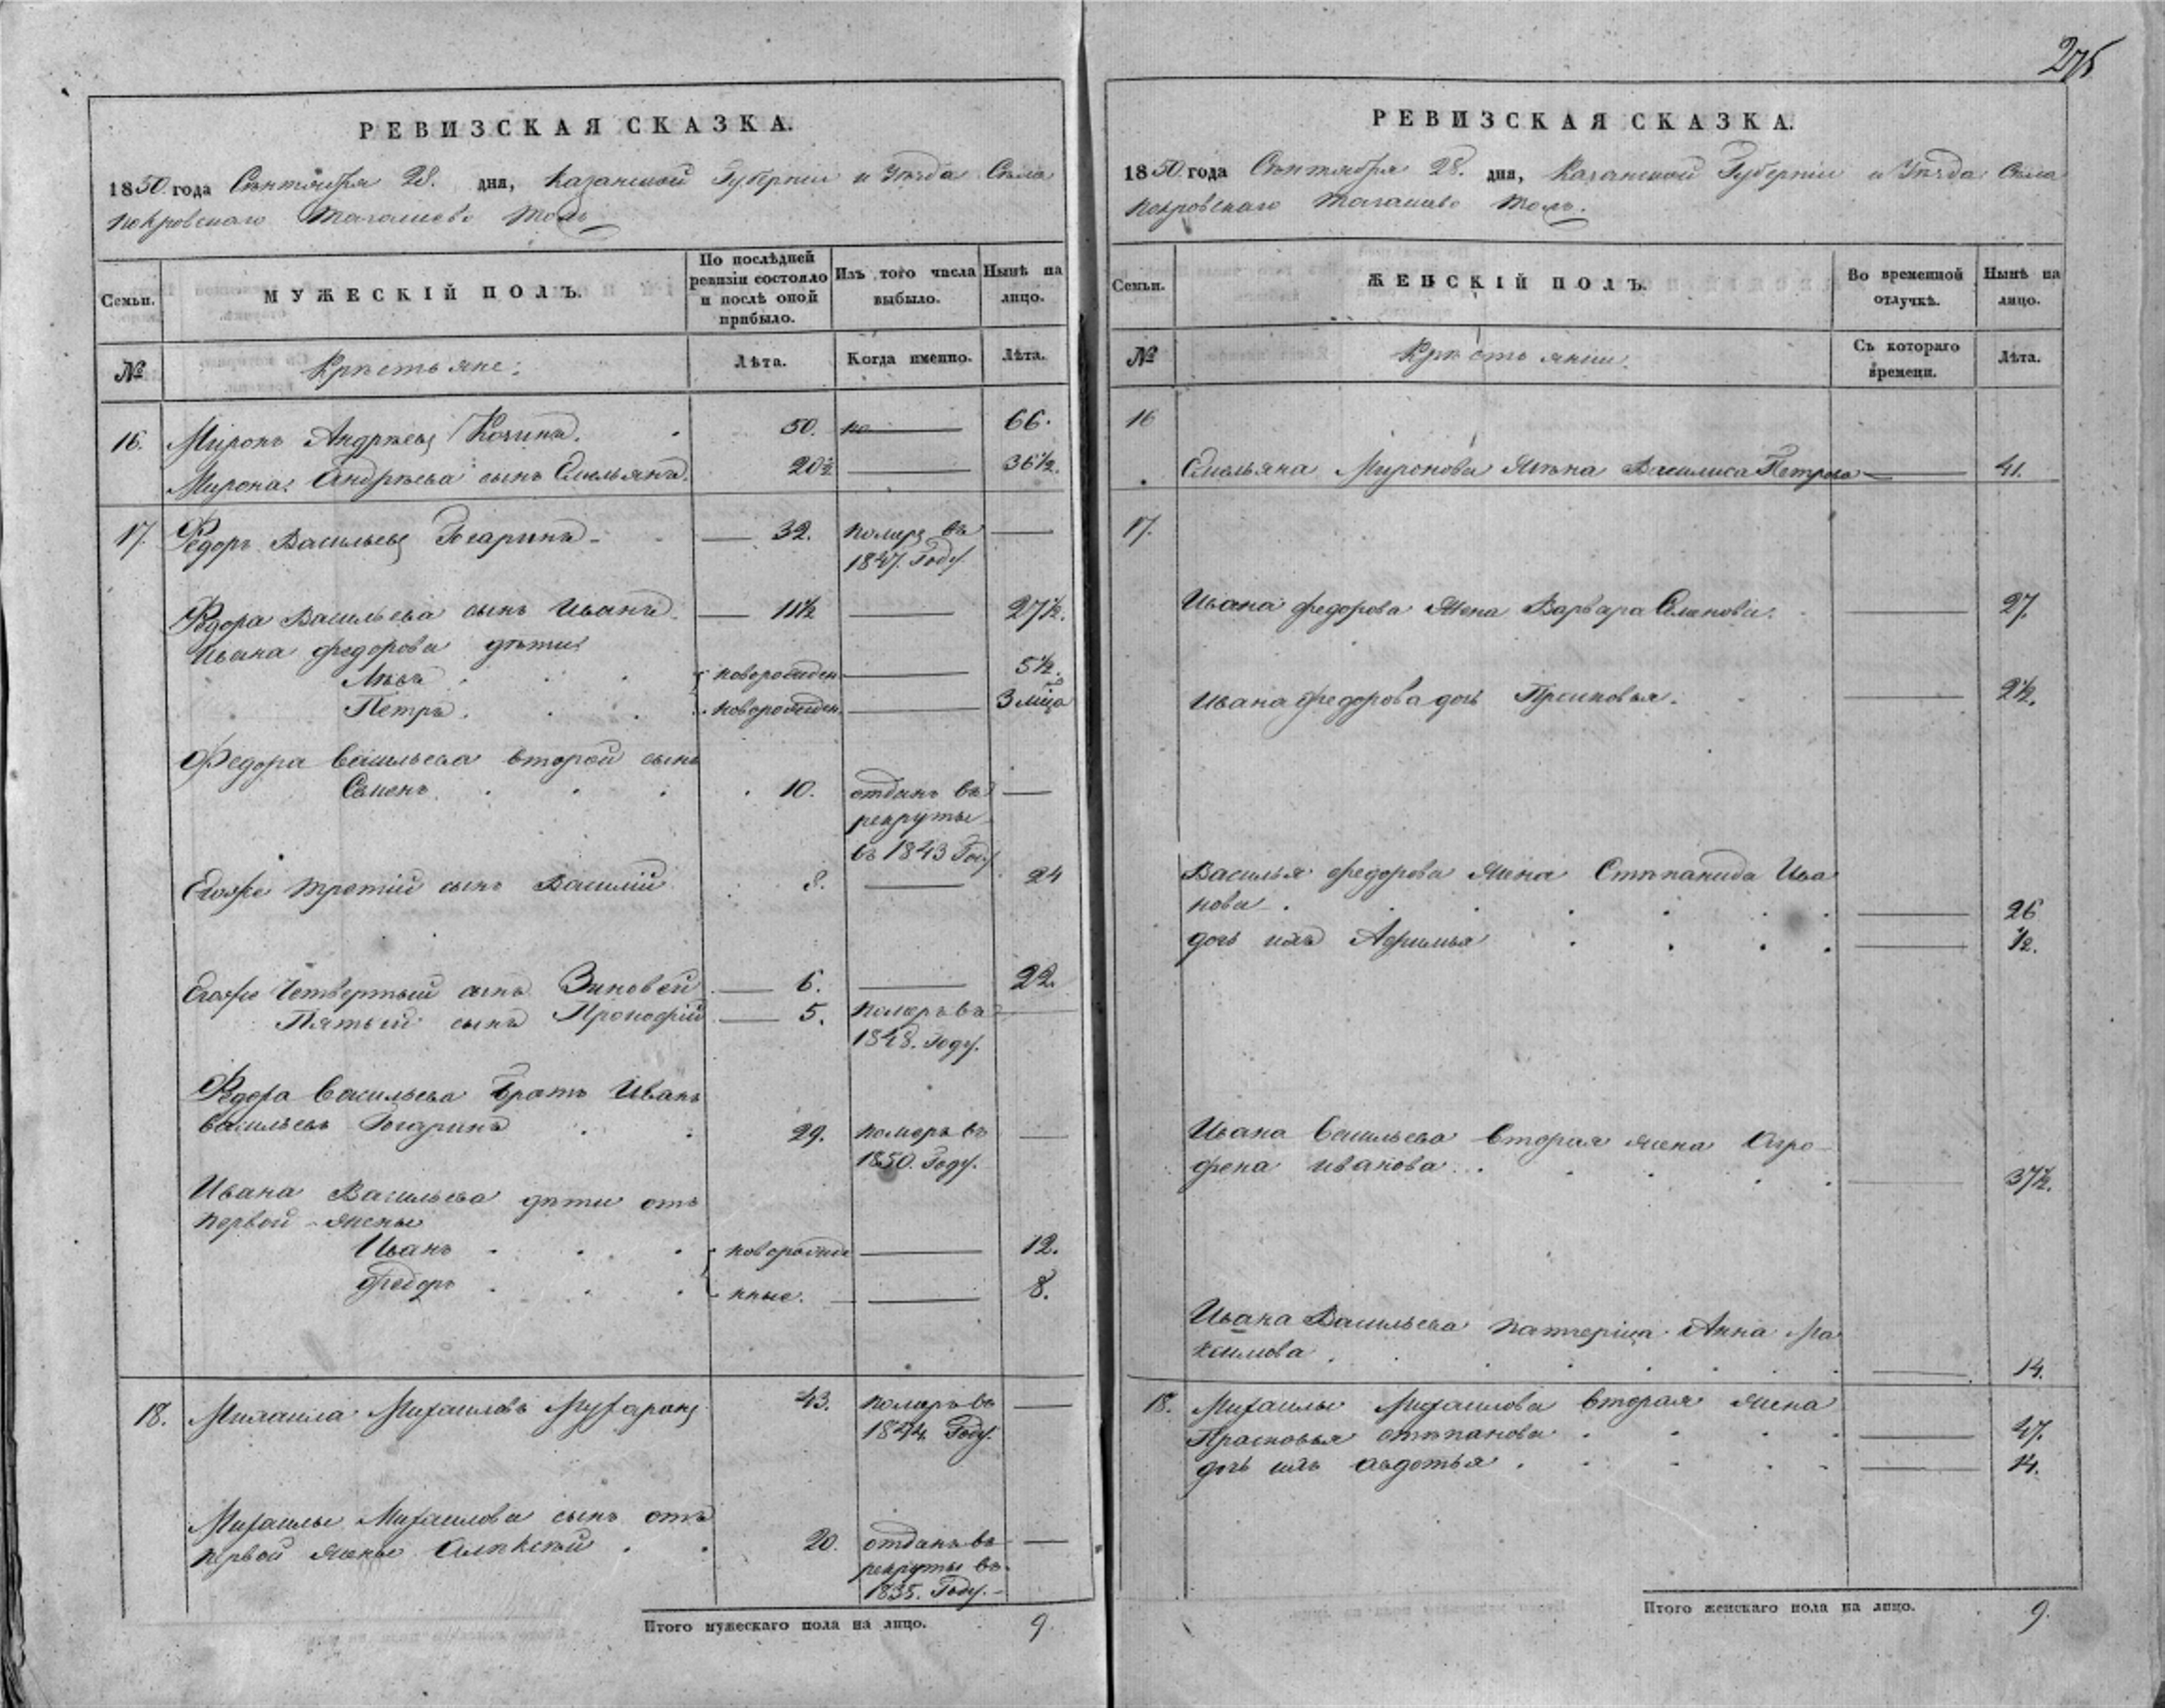 РЕВИЗСКАЯ СКАЗКА.
1850 года Сентября 28. дня, Казанской Губерніи и Уѣзда Села
Покровскаго тожъ
Семьи.
МУЖЕСКІЙ ПОЛЪ.
По послѣдней
ревизіи состояло
и послѣ оной
прибыло.
Изъ того числа
выбыло.
Нынѣ на
лицо.
№
Крестьяне:
Лѣта.
Когда именно.
Лѣта.
16. Миронъ Андреевъ 50. 66.
Мирона Андреева сынъ Емельянъ. 20½ 36½.
17. Федоръ Васильевъ 32. померъ въ
1847. Году
Федора Васильева сынъ Иванъ 11½ 27½.
Ивана Федорова дѣти
новорожден. 5½.
Петръ. новорожден. 3 мца
Федора Васильева второй сынъ
Семенъ. 10. отданъ въ
рекруты
въ 1843 Году
Егоже третій сынъ Василій 8. 24
Егоже Четвертый сынъ Зиновей 6. 22.
Пятый сынъ Прокофій 5. померъ въ
1848. Году.
Федора Васильева братъ Иванъ
Васильевъ 29. померъ въ
1850. Году.
Ивана Васильева дѣти отъ
первой жены
Иванъ новорожде 12.
Федоръ нные. 8.
18. Михаила Михаиловъ 43. померъ въ
1844. Году.
Михаилы Михаилова сынъ отъ
первой жены Алексѣй 20. отданъ въ
рекруты въ
1835. Году.
Итого мужескаго пола на лицо. 9.
275
РЕВИЗСКАЯ СКАЗКА.
1850 года Сентября 28. дня, Казанской Губерніи и Уѣзда Села
Покровскаго тожъ.
Семьи.
ЖЕНСКІЙ ПОЛЪ.
Во временной
отлучкѣ.
Нынѣ на
лицо.
№
Съ котораго
времени.
Лѣта.
16
Емельяна Миронова жена Василиса Петрова 41.
17.
Ивана Федорова жена Варвара 27.
Ивана Федорова дочь Прасковья. 2½.
Василья Федорова жена Степанида Ива
нова 26
дочь ихъ Афимья ½.
Ивана Васильева вторая жена Агро
фена Иванова 37½.
Ивана Васильева Анна Ма
ксимова 14.
18. Михаилы Михаилова вторая жена
Прасковья Степанова 47.
дочь ихъ Авдотья 14.
Итого женскаго пола на лицо. 9.